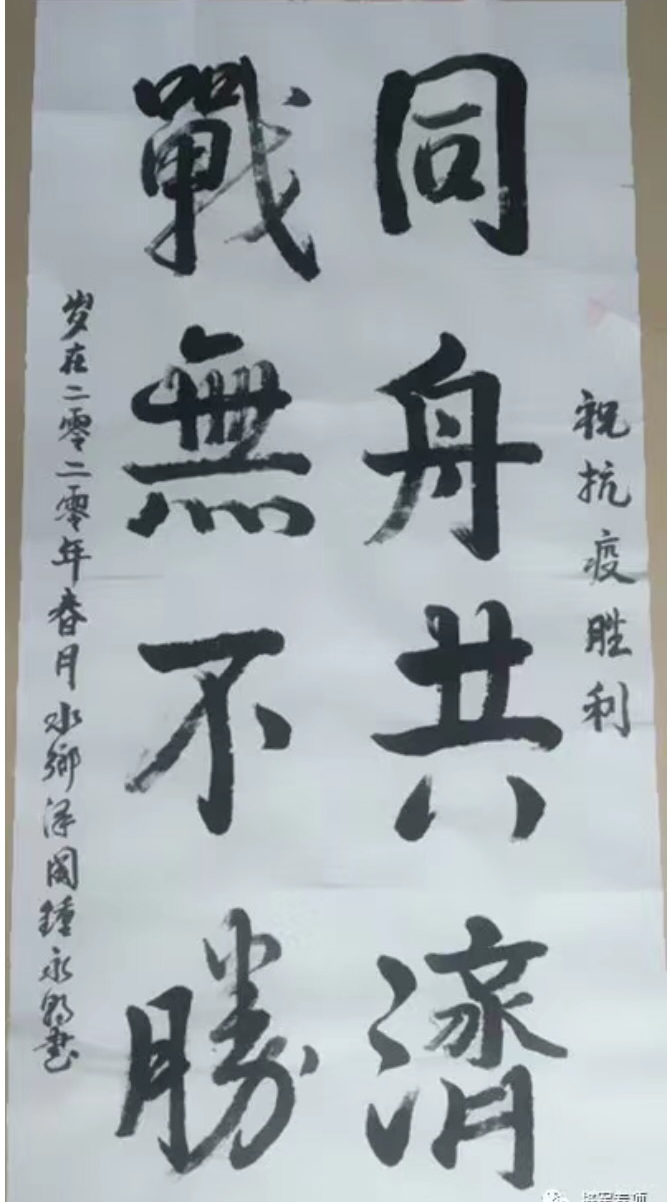 祝抗疫胜利
同舟共濟
戰無不勝
岁在二零二零年春月水鄉泽国鍾永明書